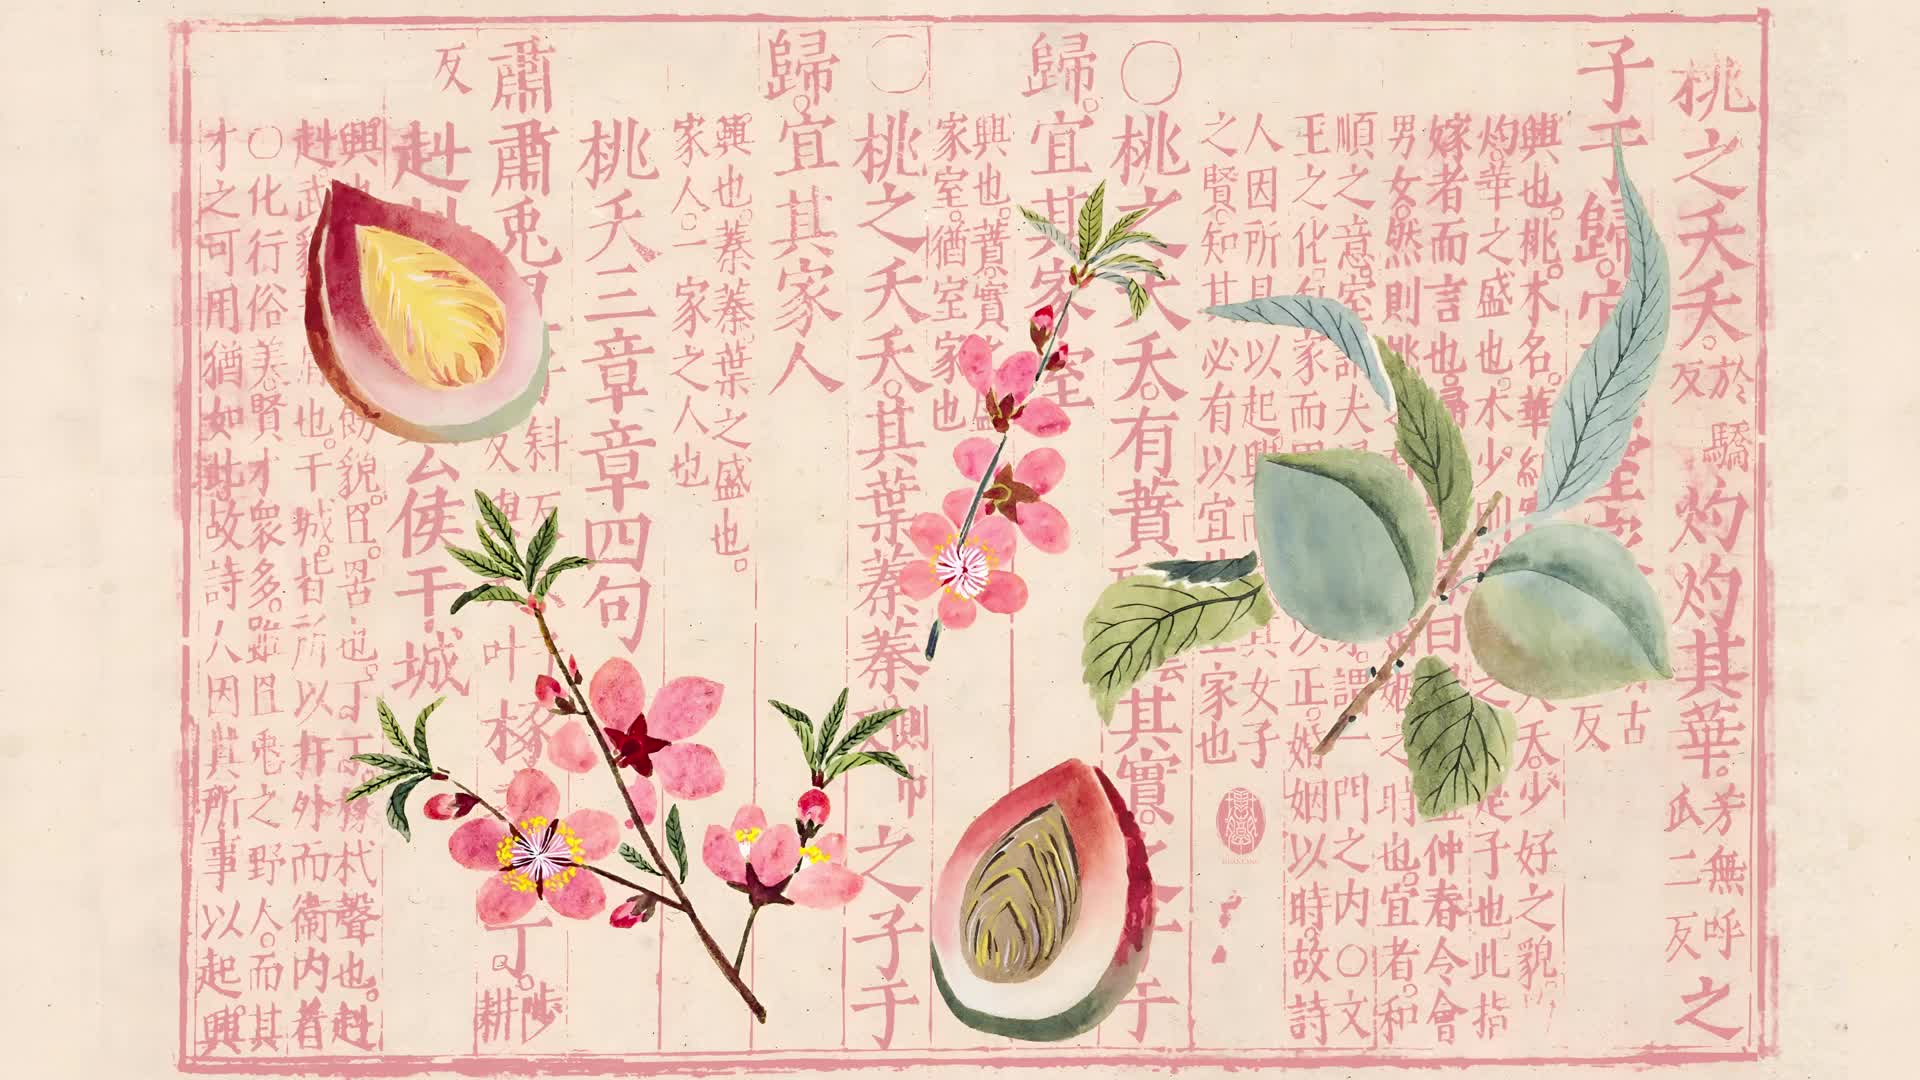 桃之夭夭。於驕反灼灼其華。芳無呼瓜二反之
子于歸。宜
興也。桃。木名。華 夭。少好之貌。
灼。華之盛也。木少則 子也。此指
嫁者而言也。 曰 仲春令會
男女。然則 姻之時也。宜者。和
順之意。室謂夫 家。謂一門之內。○文
王之化。自家而 以正。婚姻以時。故詩
人因所見以起興。而 其女子
之賢。知其必有以宜其室家也
○桃之夭夭。有蕡其實。之子于
歸。宜其家室
興也。蕡。實之盛
家室。猶室家也
○桃之夭夭。其葉蓁蓁。側巾反之子于
歸。宜其家人
興也。蓁蓁。葉之盛也。
家人。一家之人也
桃夭三章章四句
肅肅兔罝 椓 丁。
反
赳赳 公侯干城
興也 貌。罝。罟也。丁丁。椓杙聲也。赳
赳。武貌 盾也。干城。皆所以扞外而衛內者
○化行俗美。賢才衆多。雖罝兔之野人。而其
才之可用猶如此。故詩人因其所事以起興。